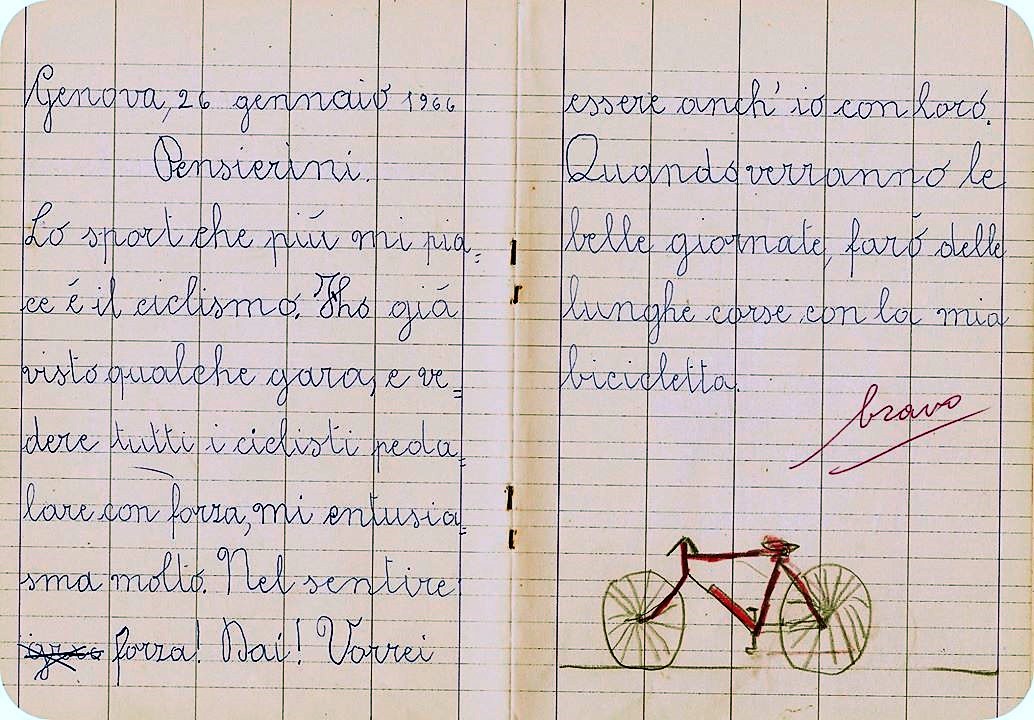 Genova, 26 gennaio 1966
Pensierini.
Lo sport che più mi pia=
ce é il ciclismo. Tho già
visto qualche gara, e ve=
dere tutti i ciclisti peda=
lare con forza, mi entusia=
sma molto. Nel sentire
forza! Dai! Vorrei
essere anch' io con loro.
Quando verranno le
belle giornate, faró delle
lunghe corse con la mia
bicicletta.
bravo